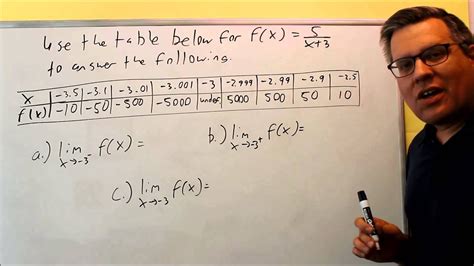 Use the table below for f(x) = 5/(x+3)
to answer the following.
x | -3.5 | -3.1 | -3.01 | -3.001 | -3 | -2.999 | -2.99 | -2.9 | -2.5
f(x) | -10 | -50 | -500 | -5000 | undef. | 5000 | 500 | 50 | 10
a.) lim x→-3⁻ f(x)=
b.) lim x→-3⁺ f(x)=
c.) lim x→-3 f(x)=